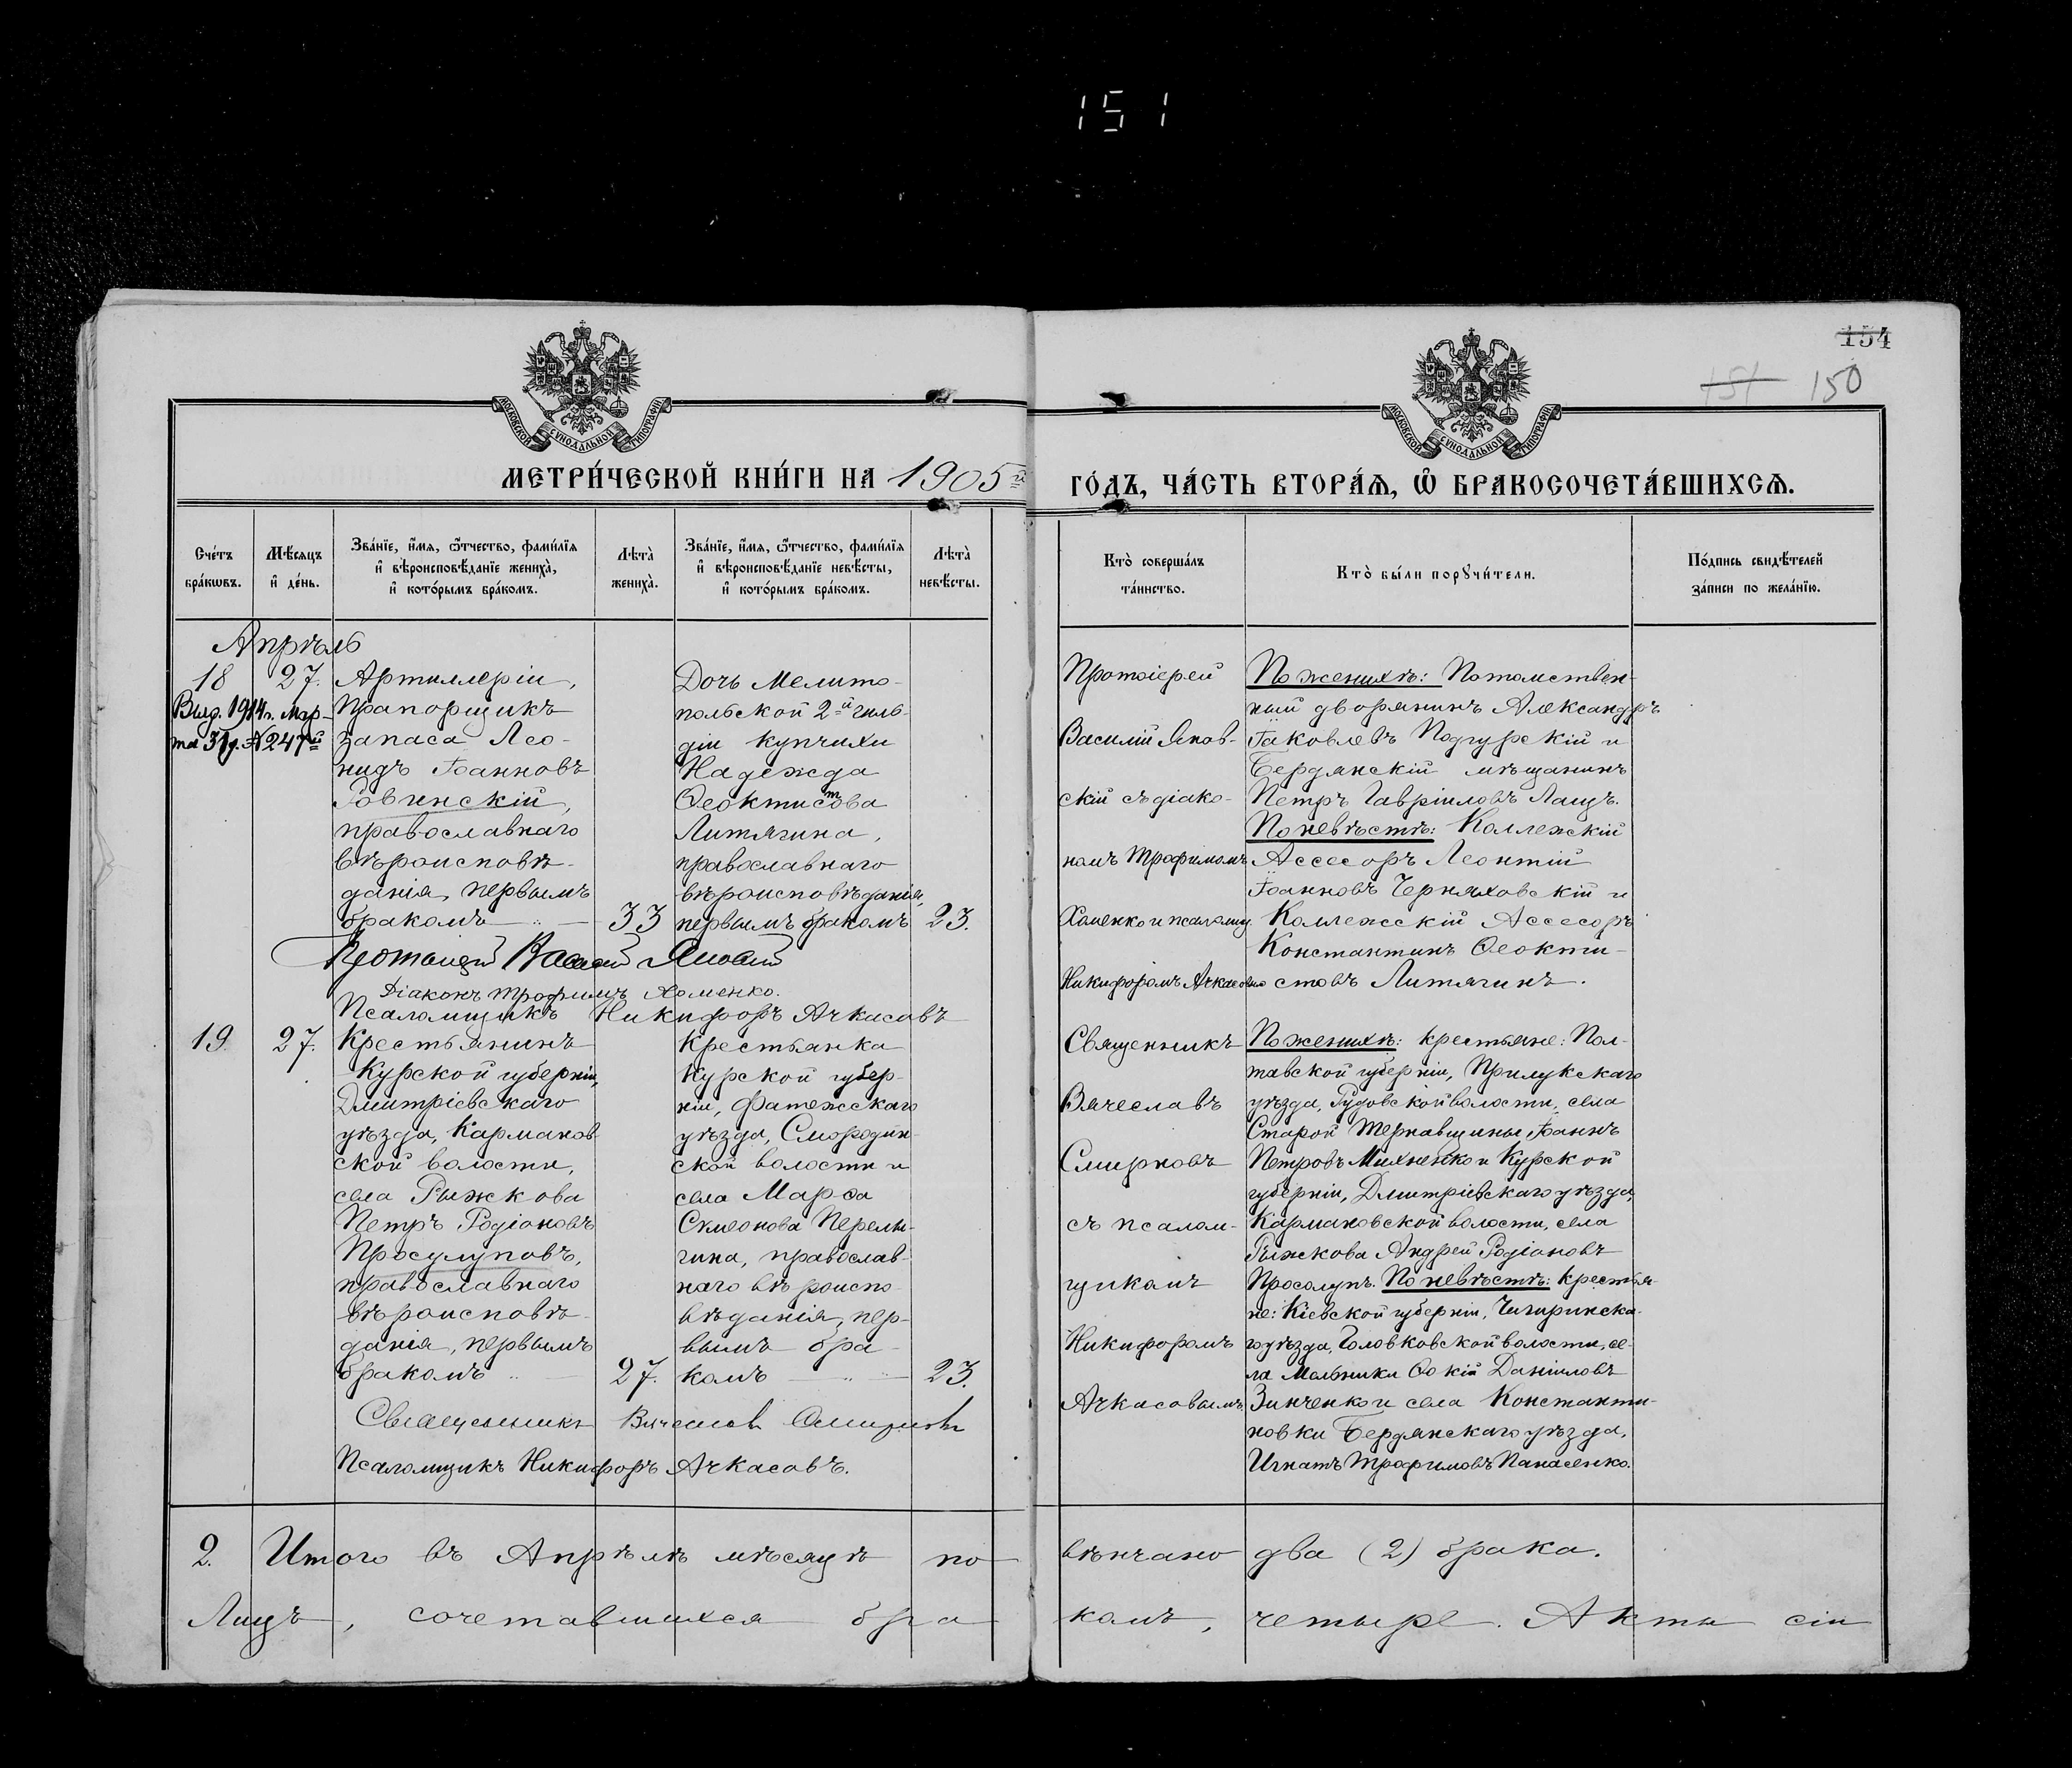 151
154
151 150
МОСКОВСКОЙ СѴНОДАЛЬНОЙ ТИПОГРАФІИ
МОСКОВСКОЙ СѴНОДАЛЬНОЙ ТИПОГРАФІИ
МЕТРИ́ЧЕСКОЙ КНИ́ГИ НА 1905й
ГО́ДЪ, ЧА́СТЬ ВТОРА́Ѧ, Ѡ҆ БРАКОСОЧЕТА́ВШИХСѦ.
Сче́тъ бра́кѡвъ.
Мѣ́сѧцъ и҆ де́нь.
Зва́нїе, и҆́мѧ, ѻ҆́тчество, фами́лїѧ
и҆ вѣроисповѣ́данїе жениха̀,
и҆ кото́рымъ бра́комъ.
Лѣта̀ жениха̀.
Зва́нїе, и҆́мѧ, ѻ҆́тчество, фами́лїѧ
и҆ вѣроисповѣ́данїе невѣ́сты,
и҆ кото́рымъ бра́комъ.
Лѣта̀ невѣ́сты.
Кто̀ соверша́лъ та́инство.
Кто̀ бы́ли порꙋчи́тели.
По́дпись свидѣ́телей
за́писи по жела́нїю.
Апрѣль
18
27.
Выд. 1914 г. Мар-
та 31 д. № 247й
Артиллеріи,
прапорщикъ
запаса Лео-
нидъ Іоанновъ
Ровинскій,
православнаго
вѣроисповѣ-
данія, первымъ
бракомъ
33
Дочь Мелито-
польской 2-й гиль-
діи купчихи
Надежда
Ѳеоктистова
Литягина,
православнаго
вѣроисповѣданія,
первымъ бракомъ
23.
Протоіерей
Василій Янов-
скій съ діако-
номъ Трофимомъ
Хоменко и псаломщ.
Никифоромъ Ачкасовымъ
По женихѣ: Потомствен-
ный дворянинъ Александръ
Іаковлевъ Подгурскій и
Бердянскій мѣщанинъ
Петръ Гавріиловъ Лащъ.
По невѣстѣ: Коллежскій
Ассесоръ Леонтій
Іоанновъ Черняховскій и
Коллежскій Ассесоръ
Константинъ Ѳеокти-
стовъ Литягинъ.
Протоіерей Василій Яновскій
Діаконъ Трофимъ Хоменко.
Псаломщикъ Никифоръ Ачкасовъ
19.
27.
Крестьянинъ
Курской губерніи,
Дмитріевскаго
уѣзда, Карманов-
ской волости,
села Рыжкова
Петръ Родіоновъ
Просулуповъ,
православнаго
вѣроисповѣ-
данія, первымъ
бракомъ
27.
Крестьянка
Курской губер-
ніи, Фатежскаго
уѣзда, Смородин-
ской волости и
села Марѳа
Сѵмеонова Перелы-
гина, православ-
наго вѣроиспо-
вѣданія, пер-
вымъ бра-
комъ
23.
Священникъ
Вячеславъ
Смирновъ
съ псалом-
щикомъ
Никифоромъ
Ачкасовымъ.
По женихѣ: крестьяне: Пол-
тавской губерніи, Прилукскаго
уѣзда, Рудовской волости, села
Старой Тернавщины, Іоаннъ
Петровъ Михненко и Курской
губерніи, Дмитріевскаго уѣзда,
Кармановской волости, села
Рыжкова Андрей Родіоновъ
Просолупъ. По невѣстѣ: крестья-
не: Кіевской губерніи, Чигиринска-
го уѣзда, Головковской волости, се-
ла Мельники Даніиловъ
Зинченко и села Константи-
новки Бердянскаго уѣзда,
Игнатъ Трофимовъ Панасенко.
Священникъ Вячеславъ Смирновъ
Псаломщикъ Никифоръ Ачкасовъ.
2. Итого въ Апрѣлѣ мѣсяцѣ по вѣнчано два (2) брака.
Лицъ, сочетавшихся бра комъ, четыре. Акты сіи